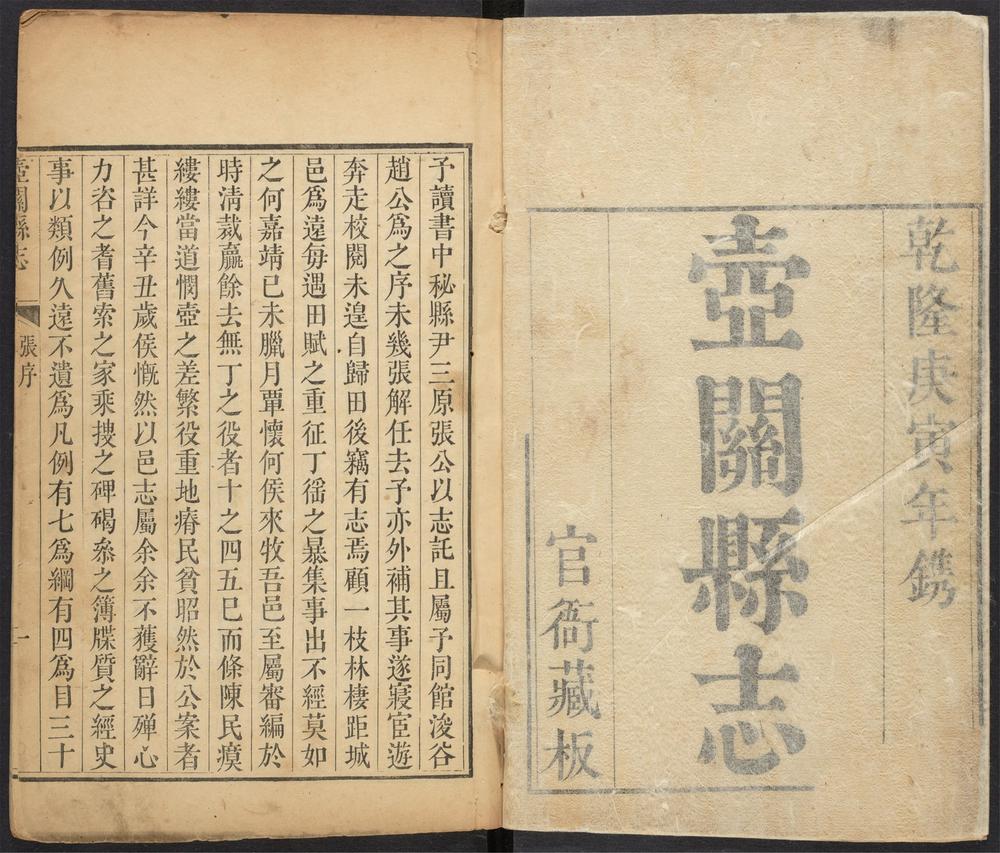 乾隆庚寅年鐫
壺關縣志
官衙藏板
予讀書中秘縣尹三原張公以志託且屬予同館浚谷
趙公爲之序未幾張解任去予亦外補其事遂寢宦遊
奔走校閱未遑自歸田後竊有志焉顧一枝林棲距城
邑爲遠毎遇田賦之重征丁徭之暴集事出不經莫如
之何嘉靖已未臘月覃懷何侯來牧吾邑至屬審編於
時清裁羸餘去無丁之役者十之四五巳而條陳民瘼
縷縷當道憫壺之差繁役重地瘠民貧昭然於公案者
甚詳今辛丑歲侯慨然以邑志屬余余不獲辭日殫心
力咨之耆舊索之家乘搜之碑碣叅之簿牒質之經史
事以類例久遠不遺爲凡例有七爲綱有四爲目三十
壺關縣志
張序
一